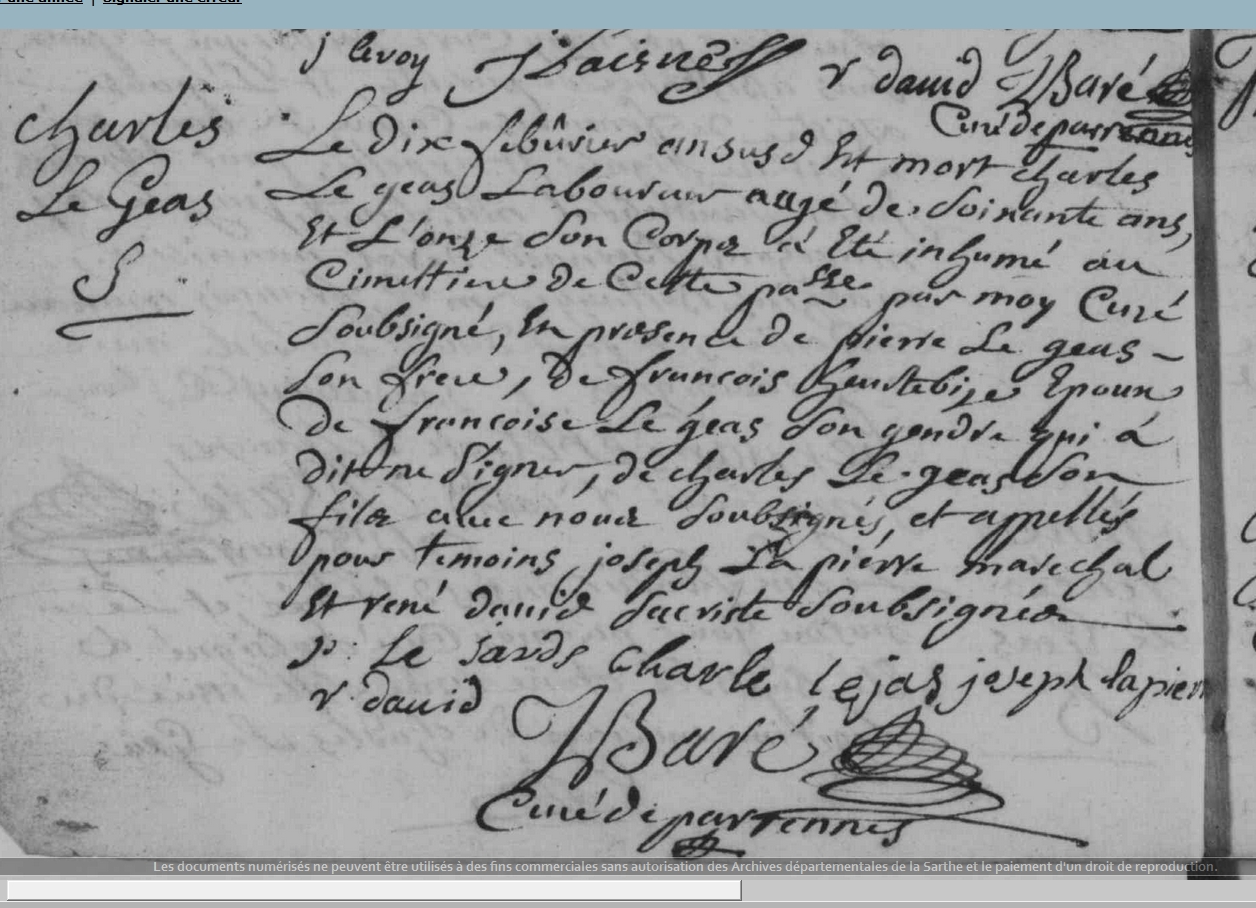 une année | Signaler une erreur
j levoy
r david JBaré
Curé de parrennes
charles
Le Geas
S
Le Dix febûrier an susd Est mort charles
Le geas Laboureur aagé de soixante ans,
Et L'onze son Corps a Eté inhumé au
Cimettiere de Cette pa.sse par moy Curé
soubsigné, En presence de pierre Le geas -
son frere, de francois Epoux
de francoise Le geas son gendre qui a
dit ne signer, de charles Le geas son
fils avec nous soubsignés, et appellés
pour temoins joseph La pierre marechal
Et rené david sacriste soubsignés
p: Le charle lejas joseph lapierr
r david
JBaré
Curé de parrennes
Les documents numérisés ne peuvent être utilisés à des fins commerciales sans autorisation des Archives départementales de la Sarthe et le paiement d'un droit de reproduction.